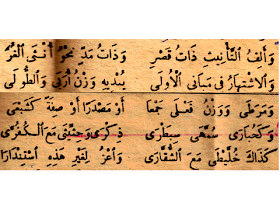 وَأَلِفُ التَّأْنِيثِ ذَاتُ قَصْرِ وَذَاتُ مَدٍّ نَحْوُ أُنْثَى الْغُرِّ
وَالِاشْتِهَارُ فِي مَبَانِي الْأُولَى يُبْدِيهِ وَزْنُ أُرَبَى وَالطُّولَى
وَمَرَطَى وَوَزْنُ فَعْلَى جَمْعَا أَوْ مَصْدَرًا أَوْ صِفَةً كَشَبْعَى
وَكَحُبَارَى سُمَّهَى سِبَطْرَى ذِكْرَى وَحِثِّيثَى مَعَ الْكُفُرَّى
كَذَاكَ خُلَّيْطَى مَعَ الشُّقَّارَى وَاعْزُ لِغَيْرِ هَذِهِ اسْتِنْدَارَا